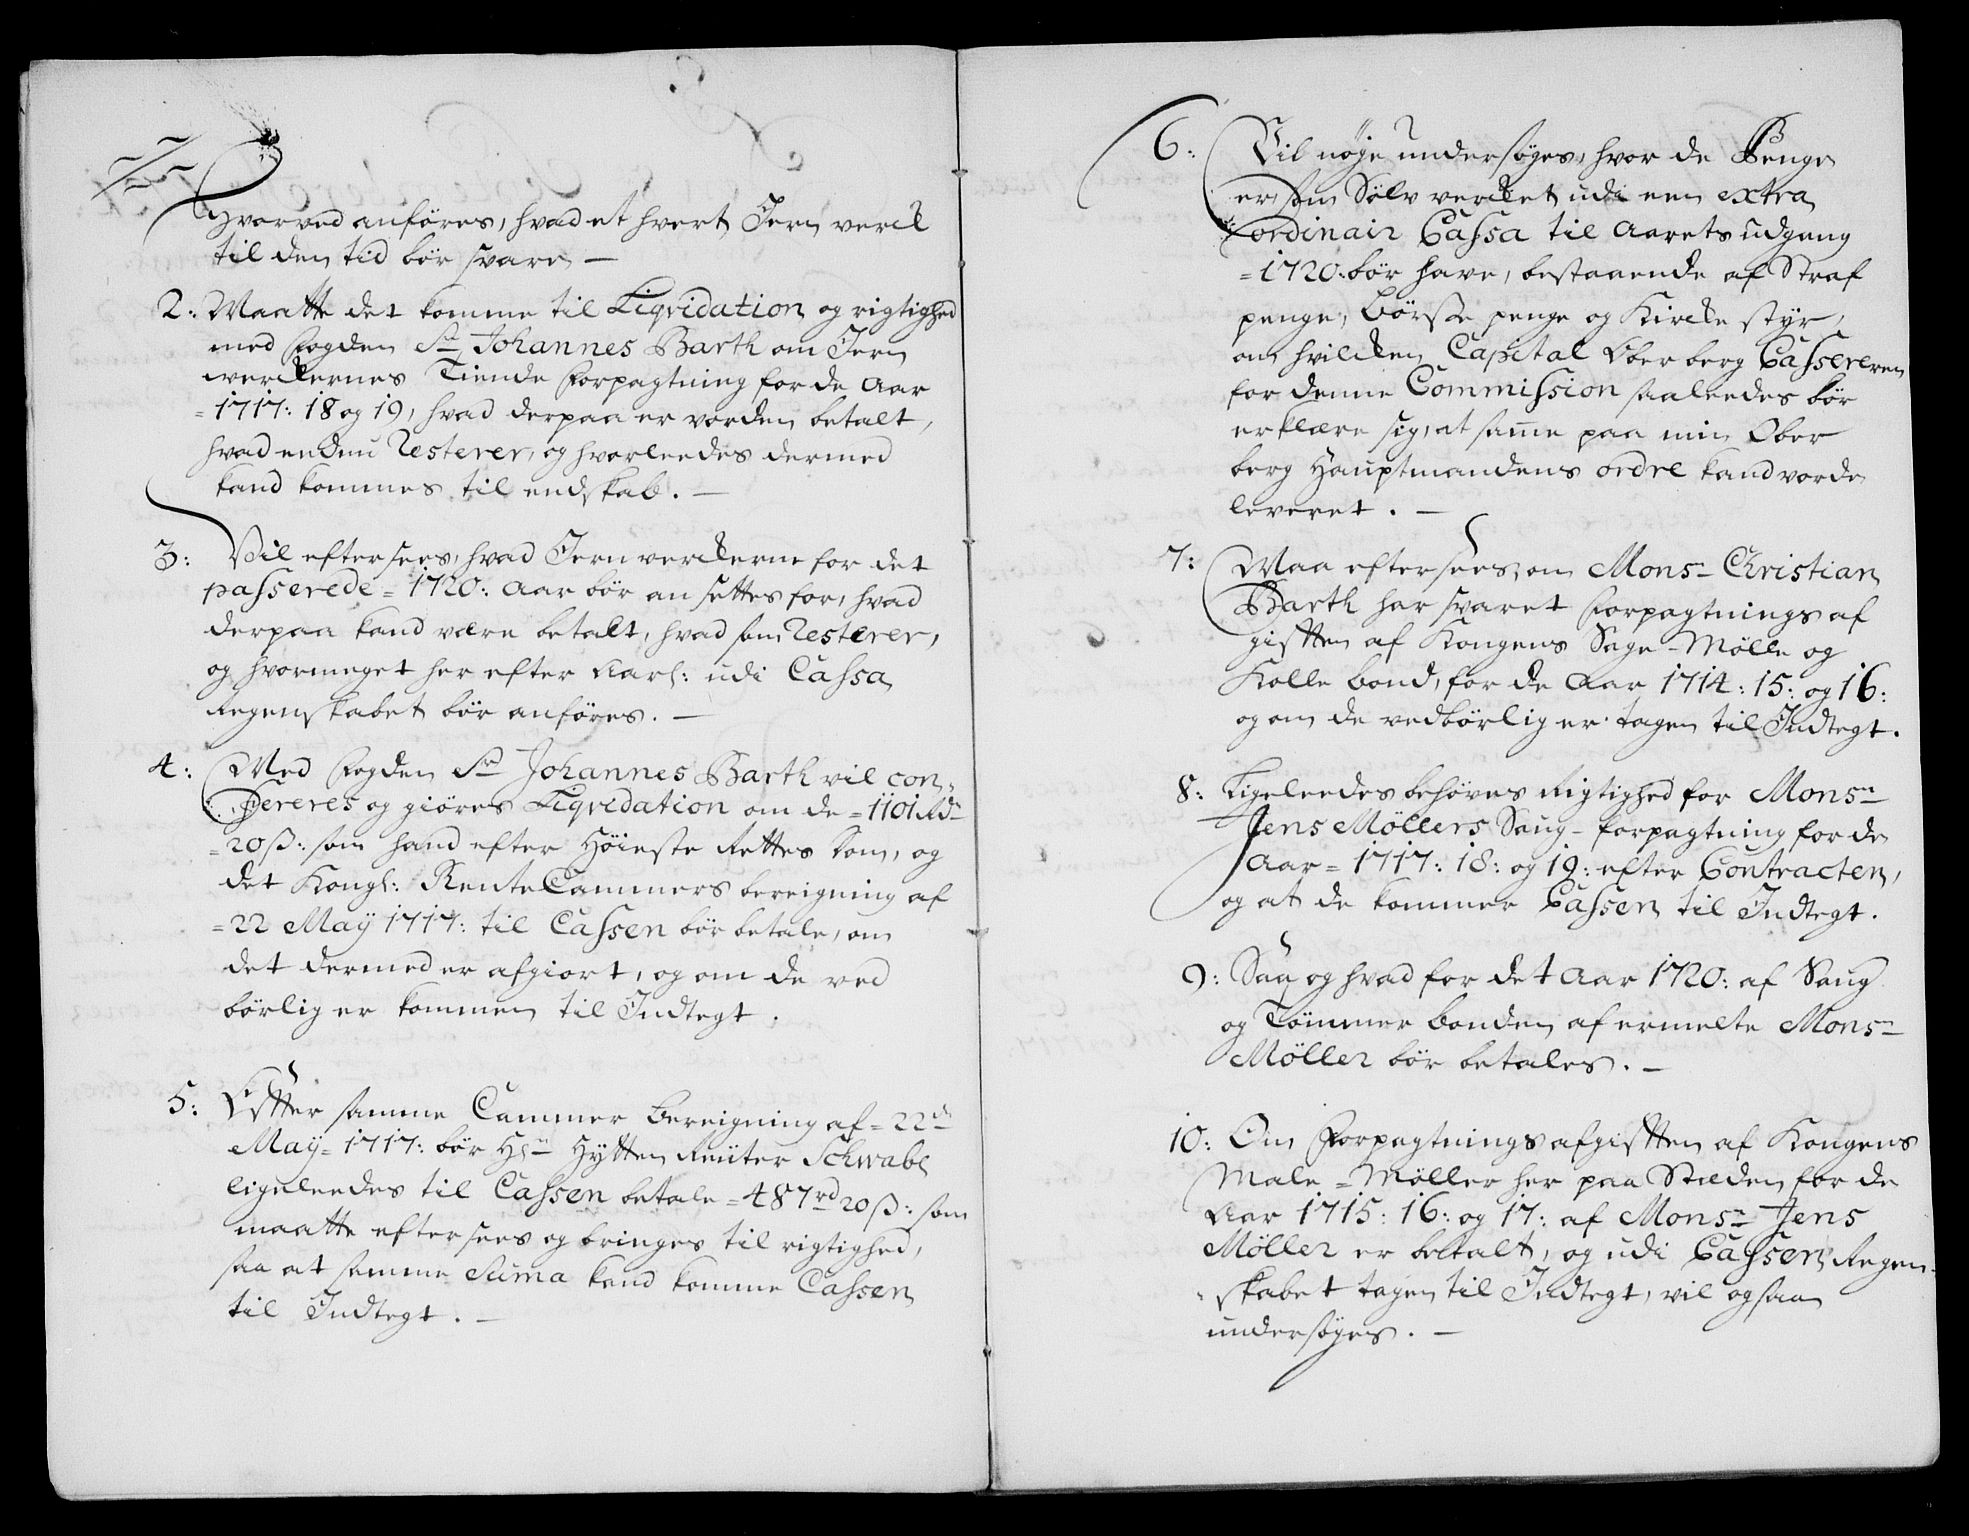 Hvorved anföres, hvad et hvert Jern verck
til den tid bör svare –
2: Maatte det komme til Liqvidation og rigtighed
med Fogden Sr Johannes Barth om Jern
werckernes Tiende Forpagtning for de Aar
=1717: 18 og 19, hvad derpaa er vorden betalt,
hvad endnu Resterer, og hvorleedes dermed
kand kommes til endskab. –
3: Vil eftersees, hvad Jernverckerne for det
passerede =1720: Aar bör ansettes for, hvad
derpaa kand være betalt, hvad som Resterer,
og hvormeget her efter Aarl: udi Cassa
Regenskabet bör anföres. –
4: Med Fogden Sr Johannes Barth vil con„
fereres og giöres Liqvidation om de =1101 Rdr
=20ß: som hand efter Höieste Rettes Dom, og
det Kongl: RenteCammers bereigning af
=22 Maÿ 1717: til Cassen bör betale, om
det dermed er afgiort, og om de ved
börlig er kommen til Indtegt.
5: Efter samme Cammer Bereigning af =22de
Maÿ =1717: bör Hr Hytten Reüter Schwabe
ligeleedes til Cassen betale =487rd 20ß: som
maatte eftersees og bringes til rigtighed,
saa at samme Suma kand komme Cassen
til Indtegt. –
6: Vil nöje undersöges, hvor de Penge
er, som Sölv vercket udi een extra
ordinair Cassa til Aarets udgang
=1720: bör have, bestaaende af Straf
penge, Börsse penge og Kircke styr,
om hvilcken Capital Ober berg Cassereren
for denne Commission saaleedes bör
erklære sig, at same paa min Ober
berg Hauptmandens ordre kand vorde
leveret. –
7: Maa eftersees, om Monsr Christian
Barth har svaret Forpagtnings af
giften af Kongens Sage-Mölle og
Kolle bond, for de Aar 1714: 15: og 16:
og om de vedbörlig er tagen til Indtegt.
8: Ligeleedes behöves Rigtighed for Monsr
Jens Möllers Saug-forpagtning for de
Aar =1717: 18: og 19: efter Contracten,
og at de kommer Cassen til Indtegt.
9: Saa og hvad for det Aar 1720: af Saug
og Tömmer bonden af ermelte Monsr
Möller bör betales. –
10: Om Forpagtnings afgiften af Kongens
Male-Möller her paa Stæden for de
Aar 1715: 16: og 17: af Monsr Jens
Möller er betalt, og udi Cassen Regen-
skabet tagen til Indtegt, vil ogsaa
undersöges. –